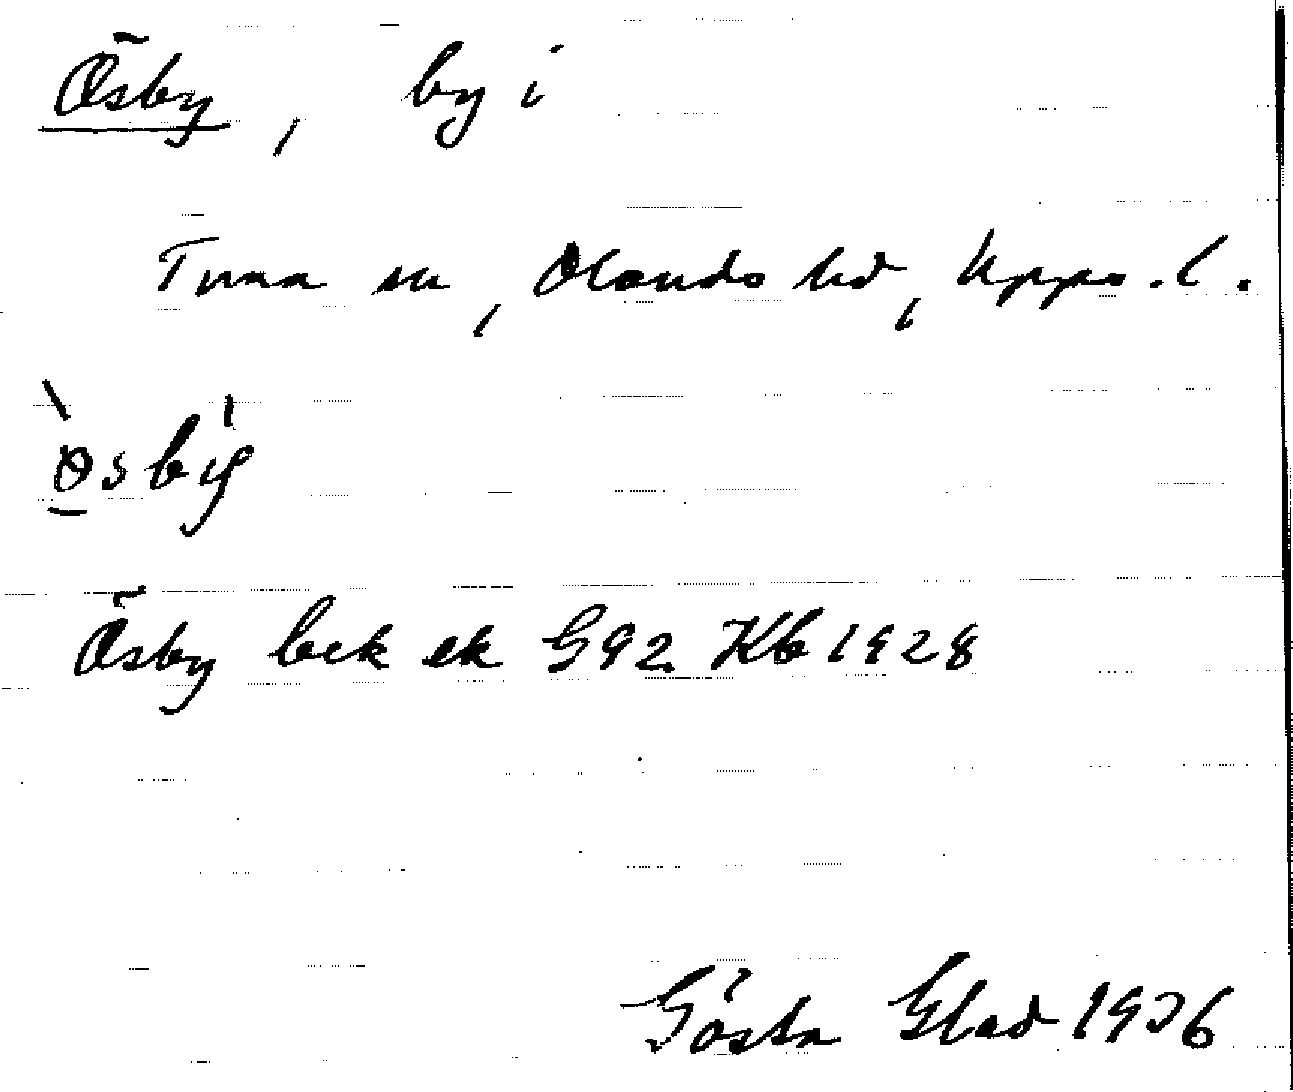 Ösby, by i
Tuna sn, Olands hd, Upps. l.
ösby
Ösby bek ek G92 Kb 1928
Gösta Blad 1936